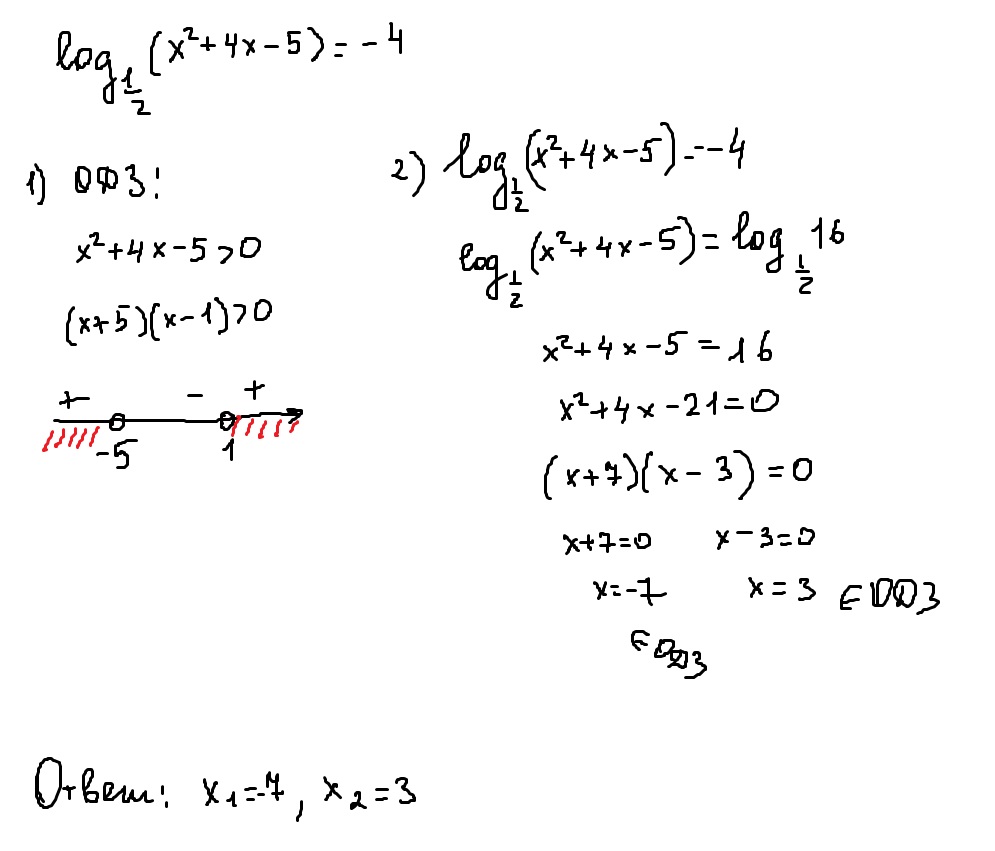 log_{1/2} (x²+4x-5) = -4
1) ОДЗ:
x²+4x-5>0
(x+5)(x-1)>0
+ - +
-5 1
2) log_{1/2} (x²+4x-5) = -4
log_{1/2} (x²+4x-5) = log_{1/2} 16
x²+4x-5=16
x²+4x-21=0
(x+7)(x-3)=0
x+7=0 x-3=0
x=-7 x=3 ∈ОДЗ
∈ОДЗ
Ответ: x₁=-7, x₂=3